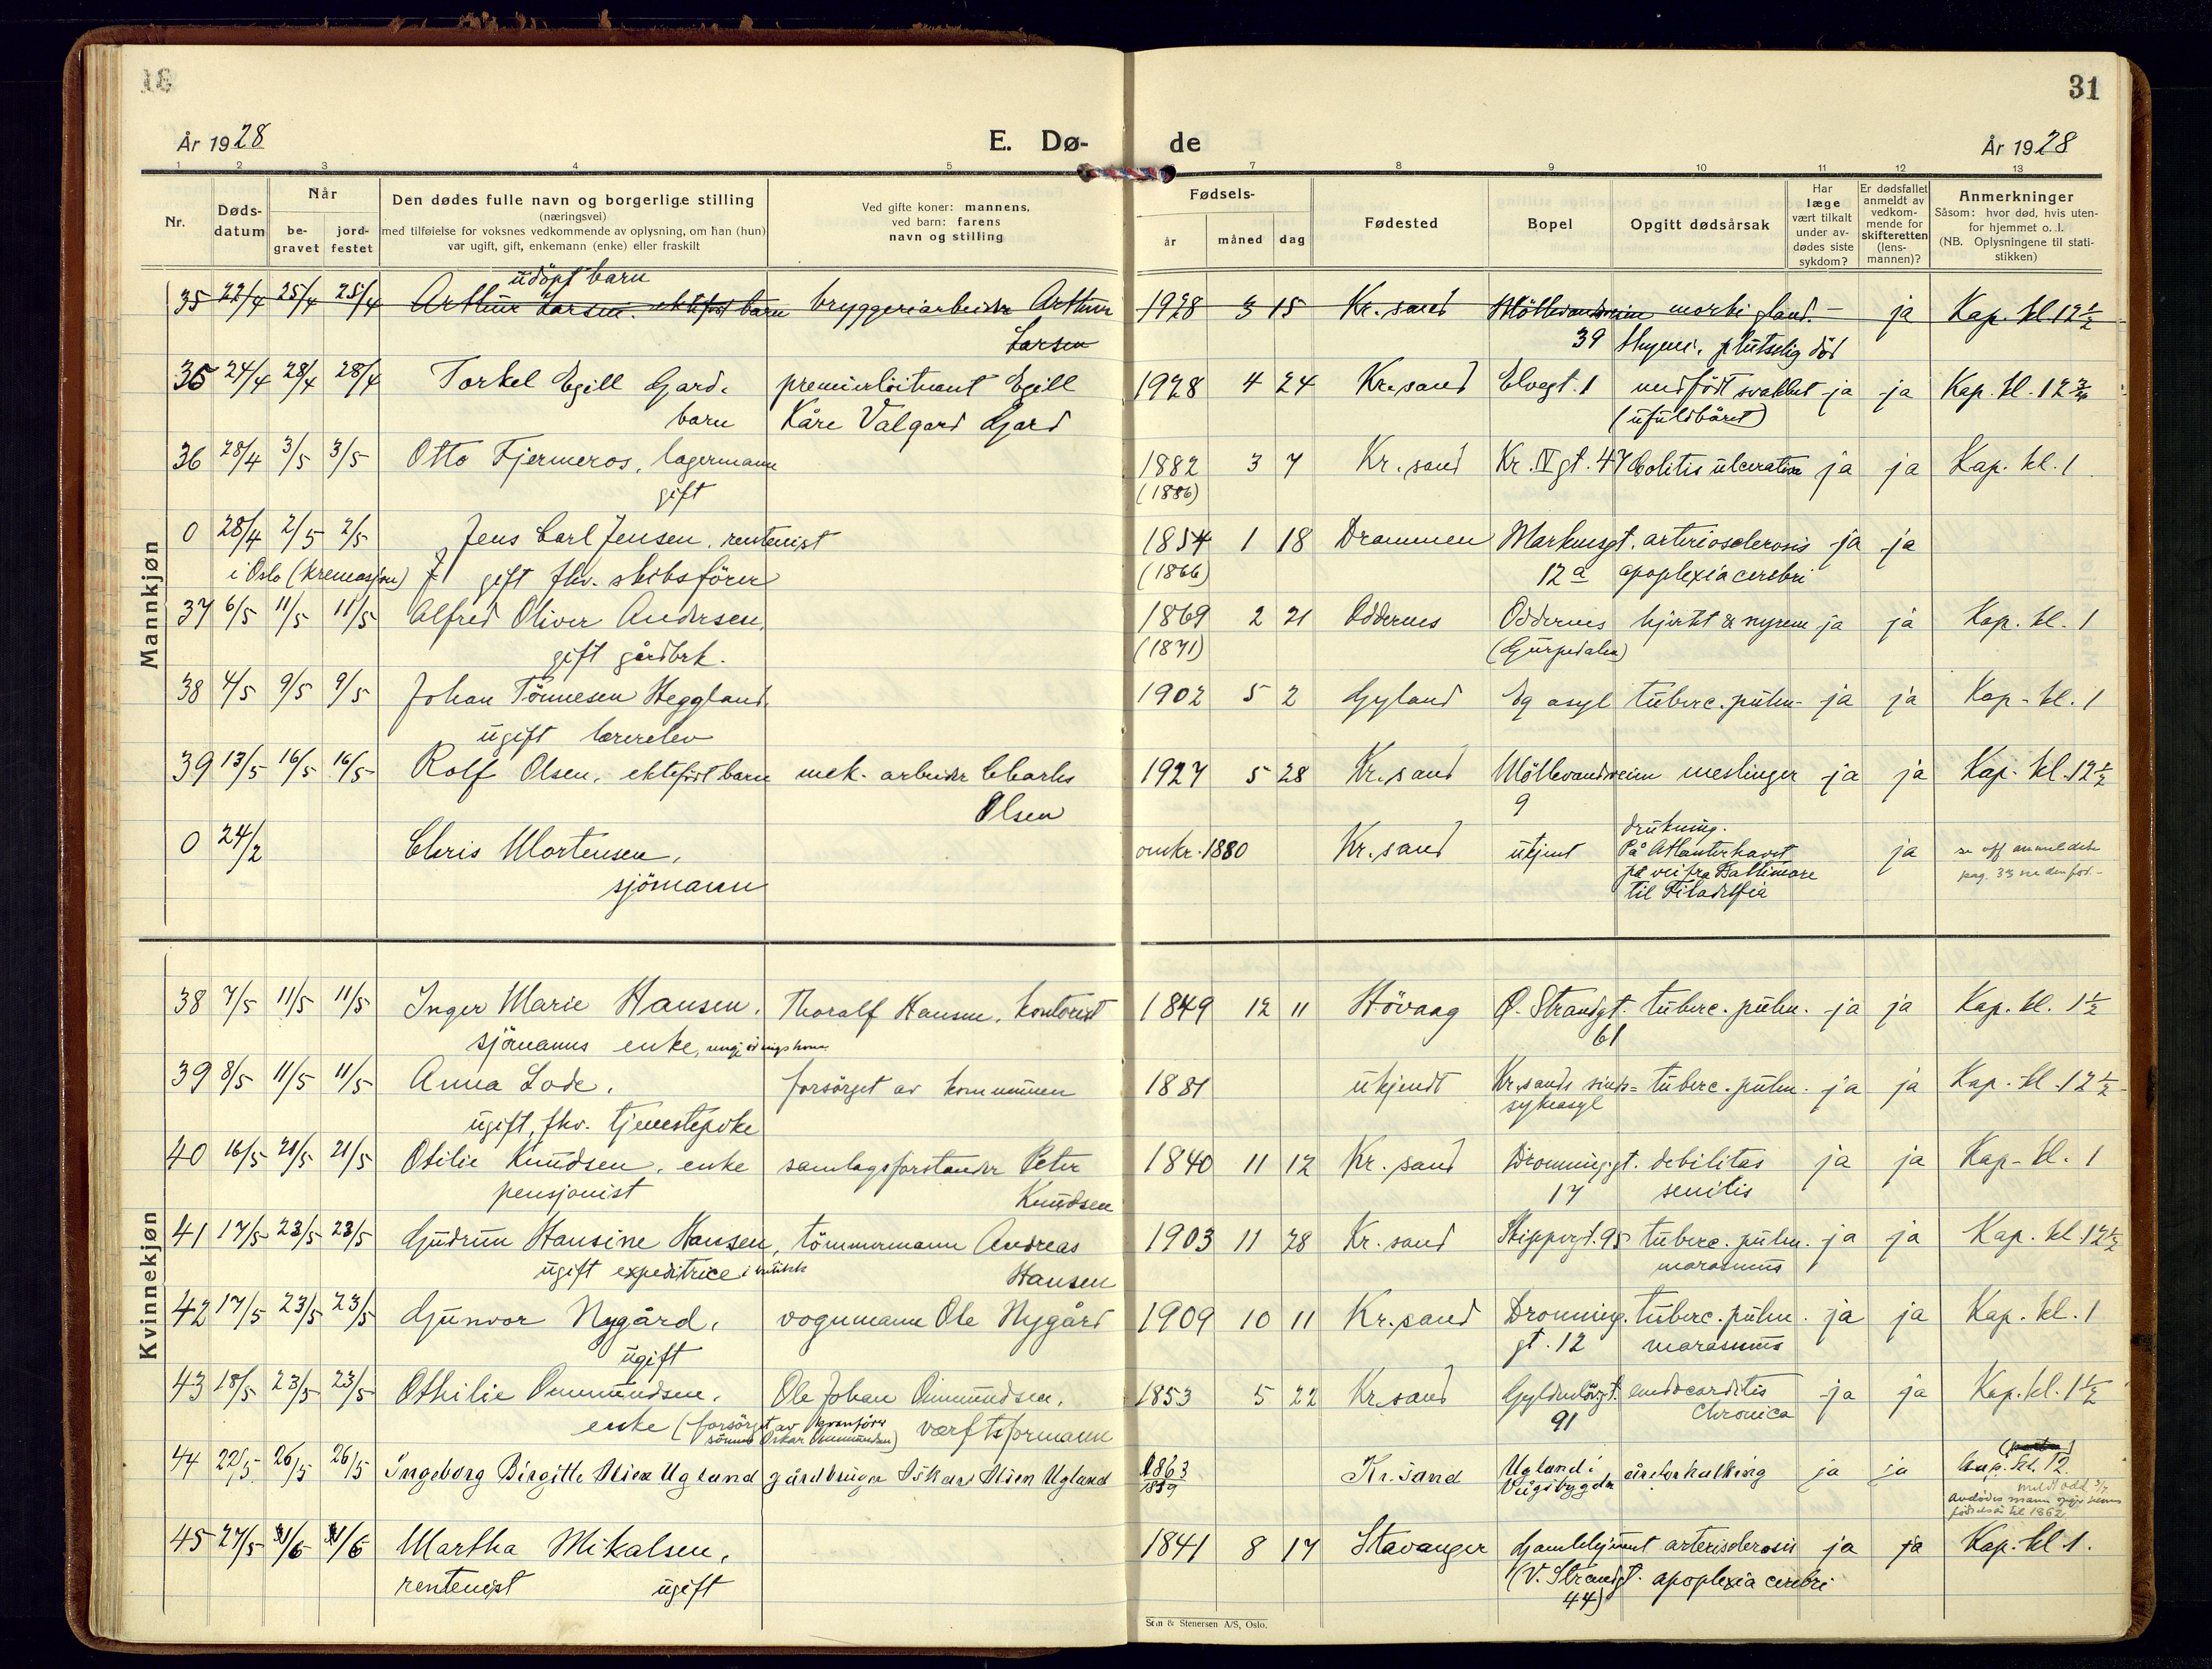 31
År 1928
E. Dø-
de
År 1928
1 2 3 4 5 7 8 9 10 11 12 13
Nr.
Døds-
datum
Når
be-
gravet
jord-
festet
Den dødes fulle navn og borgerlige stilling
(næringsvei)
med tilføielse for voksnes vedkommende av oplysning, om han (hun)
var ugift, gift, enkemann (enke) eller fraskilt
Ved gifte koner: mannens,
ved barn: farens
navn og stilling
Fødsels-
år måned dag
Fødested
Bopel
Opgitt dødsårsak
Har
læge
vært tilkalt
under av-
dødes siste
sykdom?
Er dødsfallet
anmeldt av
vedkom-
mende for
skifteretten
(lens-
mannen)?
Anmerkninger
Såsom: hvor død, hvis uten-
for hjemmet o. l.
(NB. Oplysningene til stati-
stikken)
Mannkjøn
udöpt barn
35 22/4 25/4 25/4 Arthur Larsen. ektefött barn bryggeriarbeider Arthur 1928 3 15 Kr. sand Möllevandsveien morbi gland. - ja Kap. kl. 12 1/2
Larsen 39 thymi. plutselig död
35 24/4 28/4 28/4 Torkel Egill Gard. premierlöitnant Egill 1928 4 24 Kr. sand Elvegt. 1 medfödt svakhet ja ja Kap. kl. 12 3/4
barn Kåre Valgard Gard (ufuldbåret)
36 28/4 3/5 3/5 Otto Fjermeros, lagermann 1882 3 7 Kr. sand Kr. IV gt. 47 Colitis ulcerativa ja ja Kap. kl. 1
gift (1886)
0 28/4 2/5 2/5 Jens Carl Jensen, rentenist 1854 1 18 Drammen Markensgt. arteriosclerosis ja ja
i Oslo (kremasjon) gift fhv. skibsförer (1866) 12 a apoplexia cerebri
37 6/5 11/5 11/5 Alfred Oliver Andersen, 1869 2 21 Oddernes Oddernes hjertet & nyrene ja ja Kap. kl. 1
gift gårdbrk. (1871)
38 4/5 9/5 9/5 Johan Tönnesen Heggland. 1902 5 2 Gyland Eg asyl tuberc. pulm. ja ja Kap. kl. 1
ugift lærerelev
39 13/5 16/5 16/5 Rolf Olsen, ektefött barn mek. arbeider Charles 1927 5 28 Kr. sand Möllevandsveien meslinger ja ja Kap. kl. 12 1/2
Olsen 9
0 24/2 Chris Mortensen, omkr. 1880 Kr. sand ukjent drukning. ja se off anmeldete
sjömann På Atlanterhavet pag. 33 nedenfor.-
på vei fra Baltimore
til Filadelfia
Kvinnekjøn
38 7/5 11/5 11/5 Inger Marie Hansen, Thoralf Hansen, kontorist 1849 12 11 Hövaag Ø. Strandgt. tuberc. pulm. ja ja Kap. kl. 1 1/2
sjömanns enke, 61
39 8/5 11/5 11/5 Anna Lode, forsörget av kommunen 1881 ukjendt Kr. sands sinds= tuberc. pulm. ja ja Kap. kl. 12 1/2
ugift, fhv. tjenestepike sykeasyl
40 16/5 21/5 21/5 Otilie Knudsen, enke samlagsforstander Peter 1840 11 12 Kr. sand Dronninggt. debilitas ja ja Kap. kl. 1
pensjonist Knudsen 17 senilis
41 17/5 23/5 23/5 Gudrun Hansine Hansen, tömmermann Andreas 1903 11 28 Kr. sand Skippergt. 95 tuberc. pulm. ja ja Kap. kl 12 1/2
ugift expeditrice i butikk Hansen marasmus
42 17/5 23/5 23/5 Gunvor Nygård, vognmann Ole Nygård 1909 10 11 Kr. sand Dronning. tuberc. pulm. ja ja Kap. kl. 1
ugift gt. 12 marasmus
43 18/5 23/5 23/5 Othilie Ommundsen, Ole Johan Ommundsen, 1853 5 22 Kr. sand Gyldenlövgt. endocarditis ja ja Kap. kl. 1 1/2
enke (forsörget av kranförer værftsformann 91 Chronica
sönnen Oskar Ommundsen)
44 22/5 26/5 26/5 Ingeborg Birgitte Olsen Ugland gårdbruger Oskar Olsen Ugland 1863 Kr. sand Ugland i åreforkalkning ja ja Kap. kl. 12
1859 Vågsbygda
Avdödes mann
födselsår til 1862.
45 27/5 1/6 1/6 Martha Mikalsen, 1841 8 17 Stavanger Gamlehjemmet arteriosclerosis ja ja Kap. kl 1.
rentenist ugift (V. Strandgt. apoplexia cerebri
44)
Steen & Stenersen A/S, Oslo.